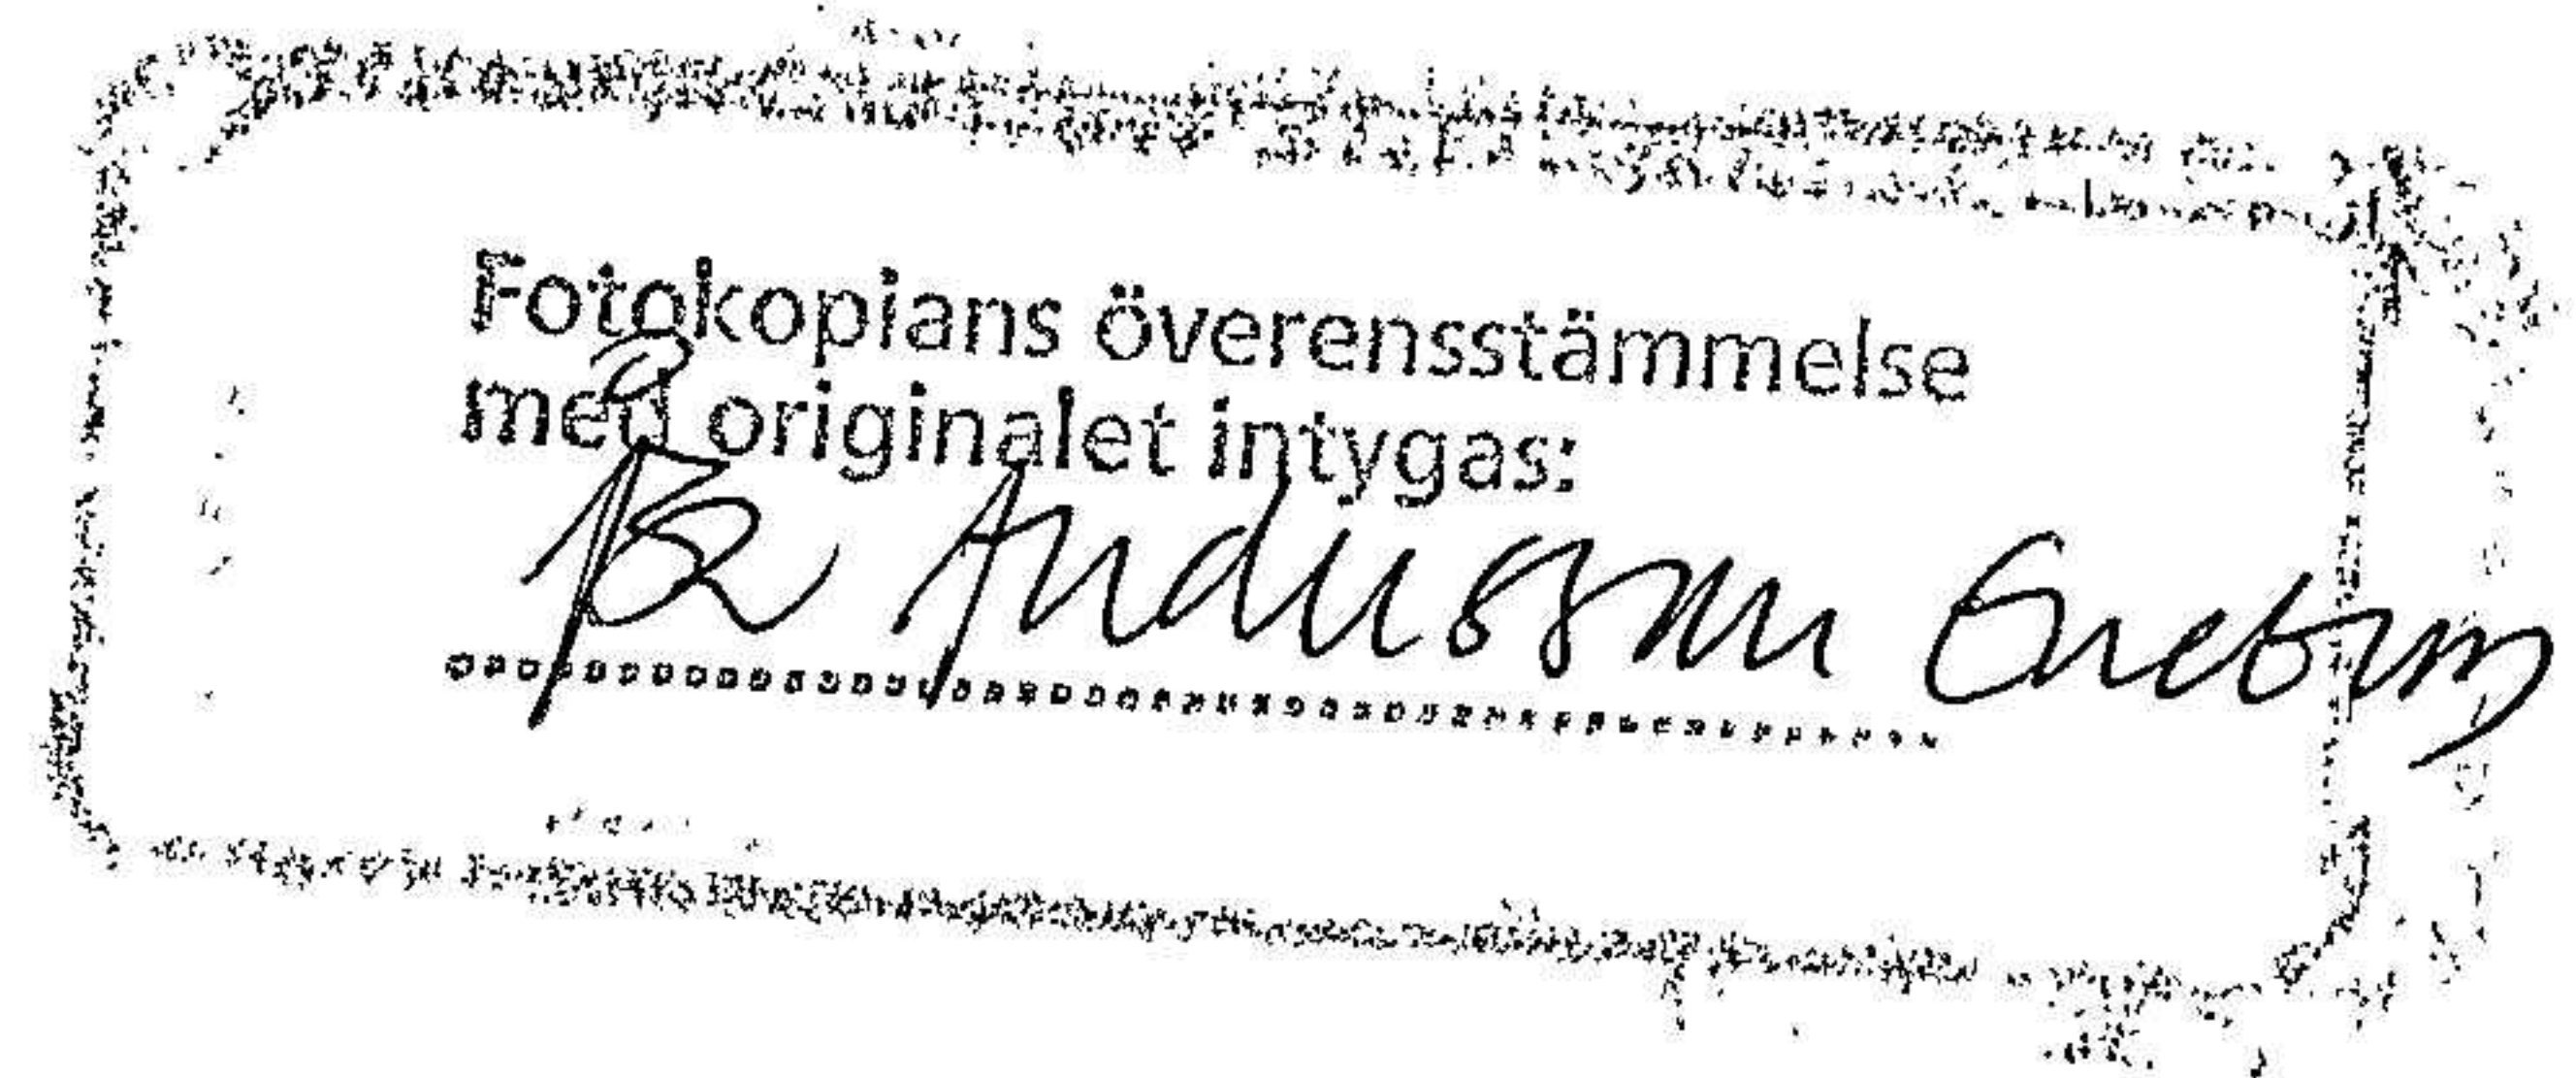 Fotokopians överensstämmelse
med originalet intygas:
Andersson